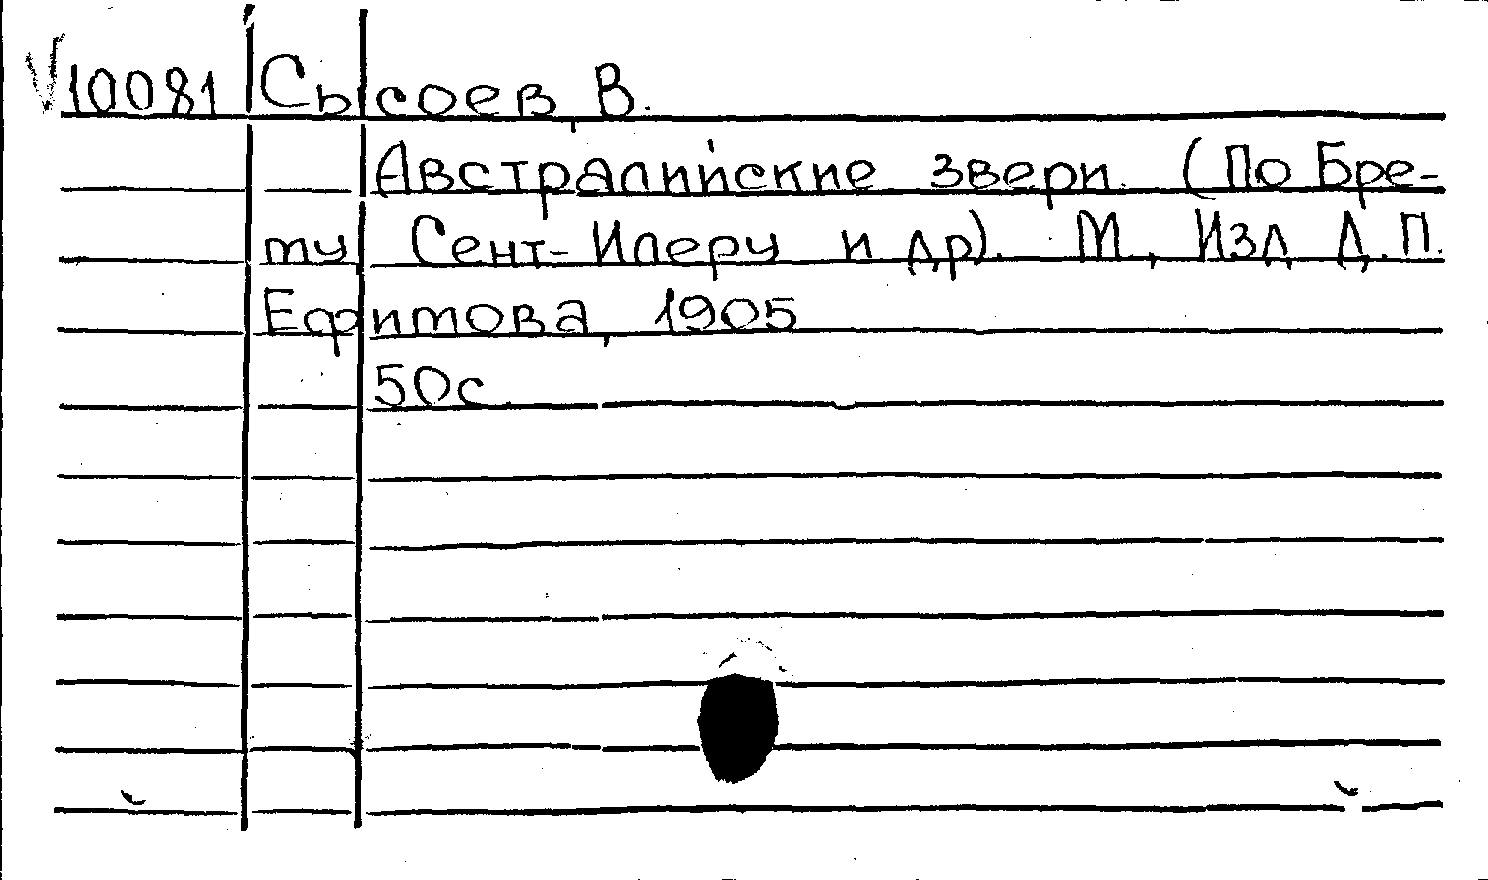 V10081 Сысоев, В.
Австралийские звери. (По Бре-
ту Сент-Илеру и др). М., Изд. Д.П.
Ефимова, 1905
50с.